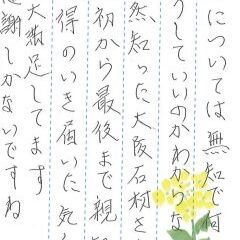 については無知で何
うしていいのかわからな
然知った大阪石材さ
初から最後まで親
得のいき届いた気
大満足してます
謝しかないですね